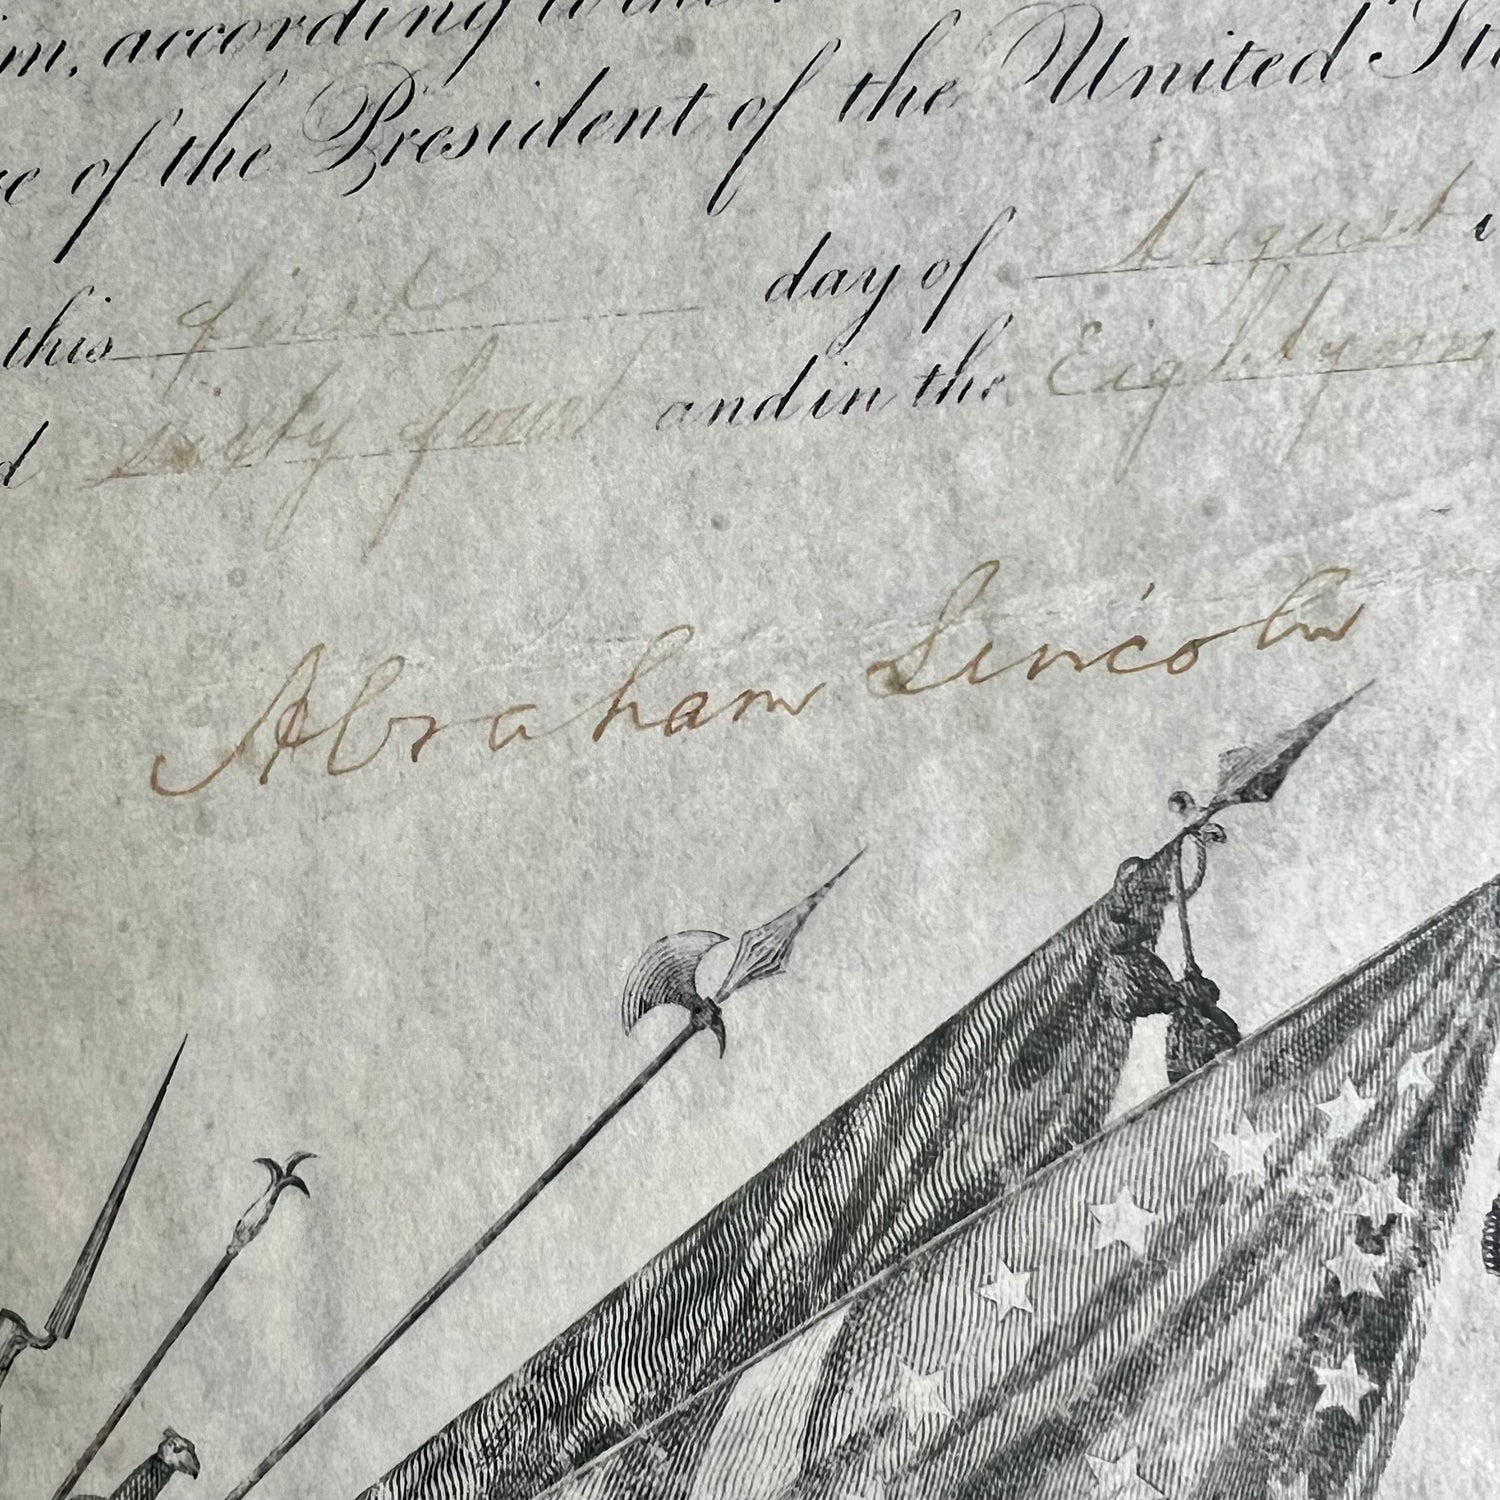 m, according to the
of the President of the United Sta
this first day of August
d sixty four and in the Eighty nin
Abraham Lincoln